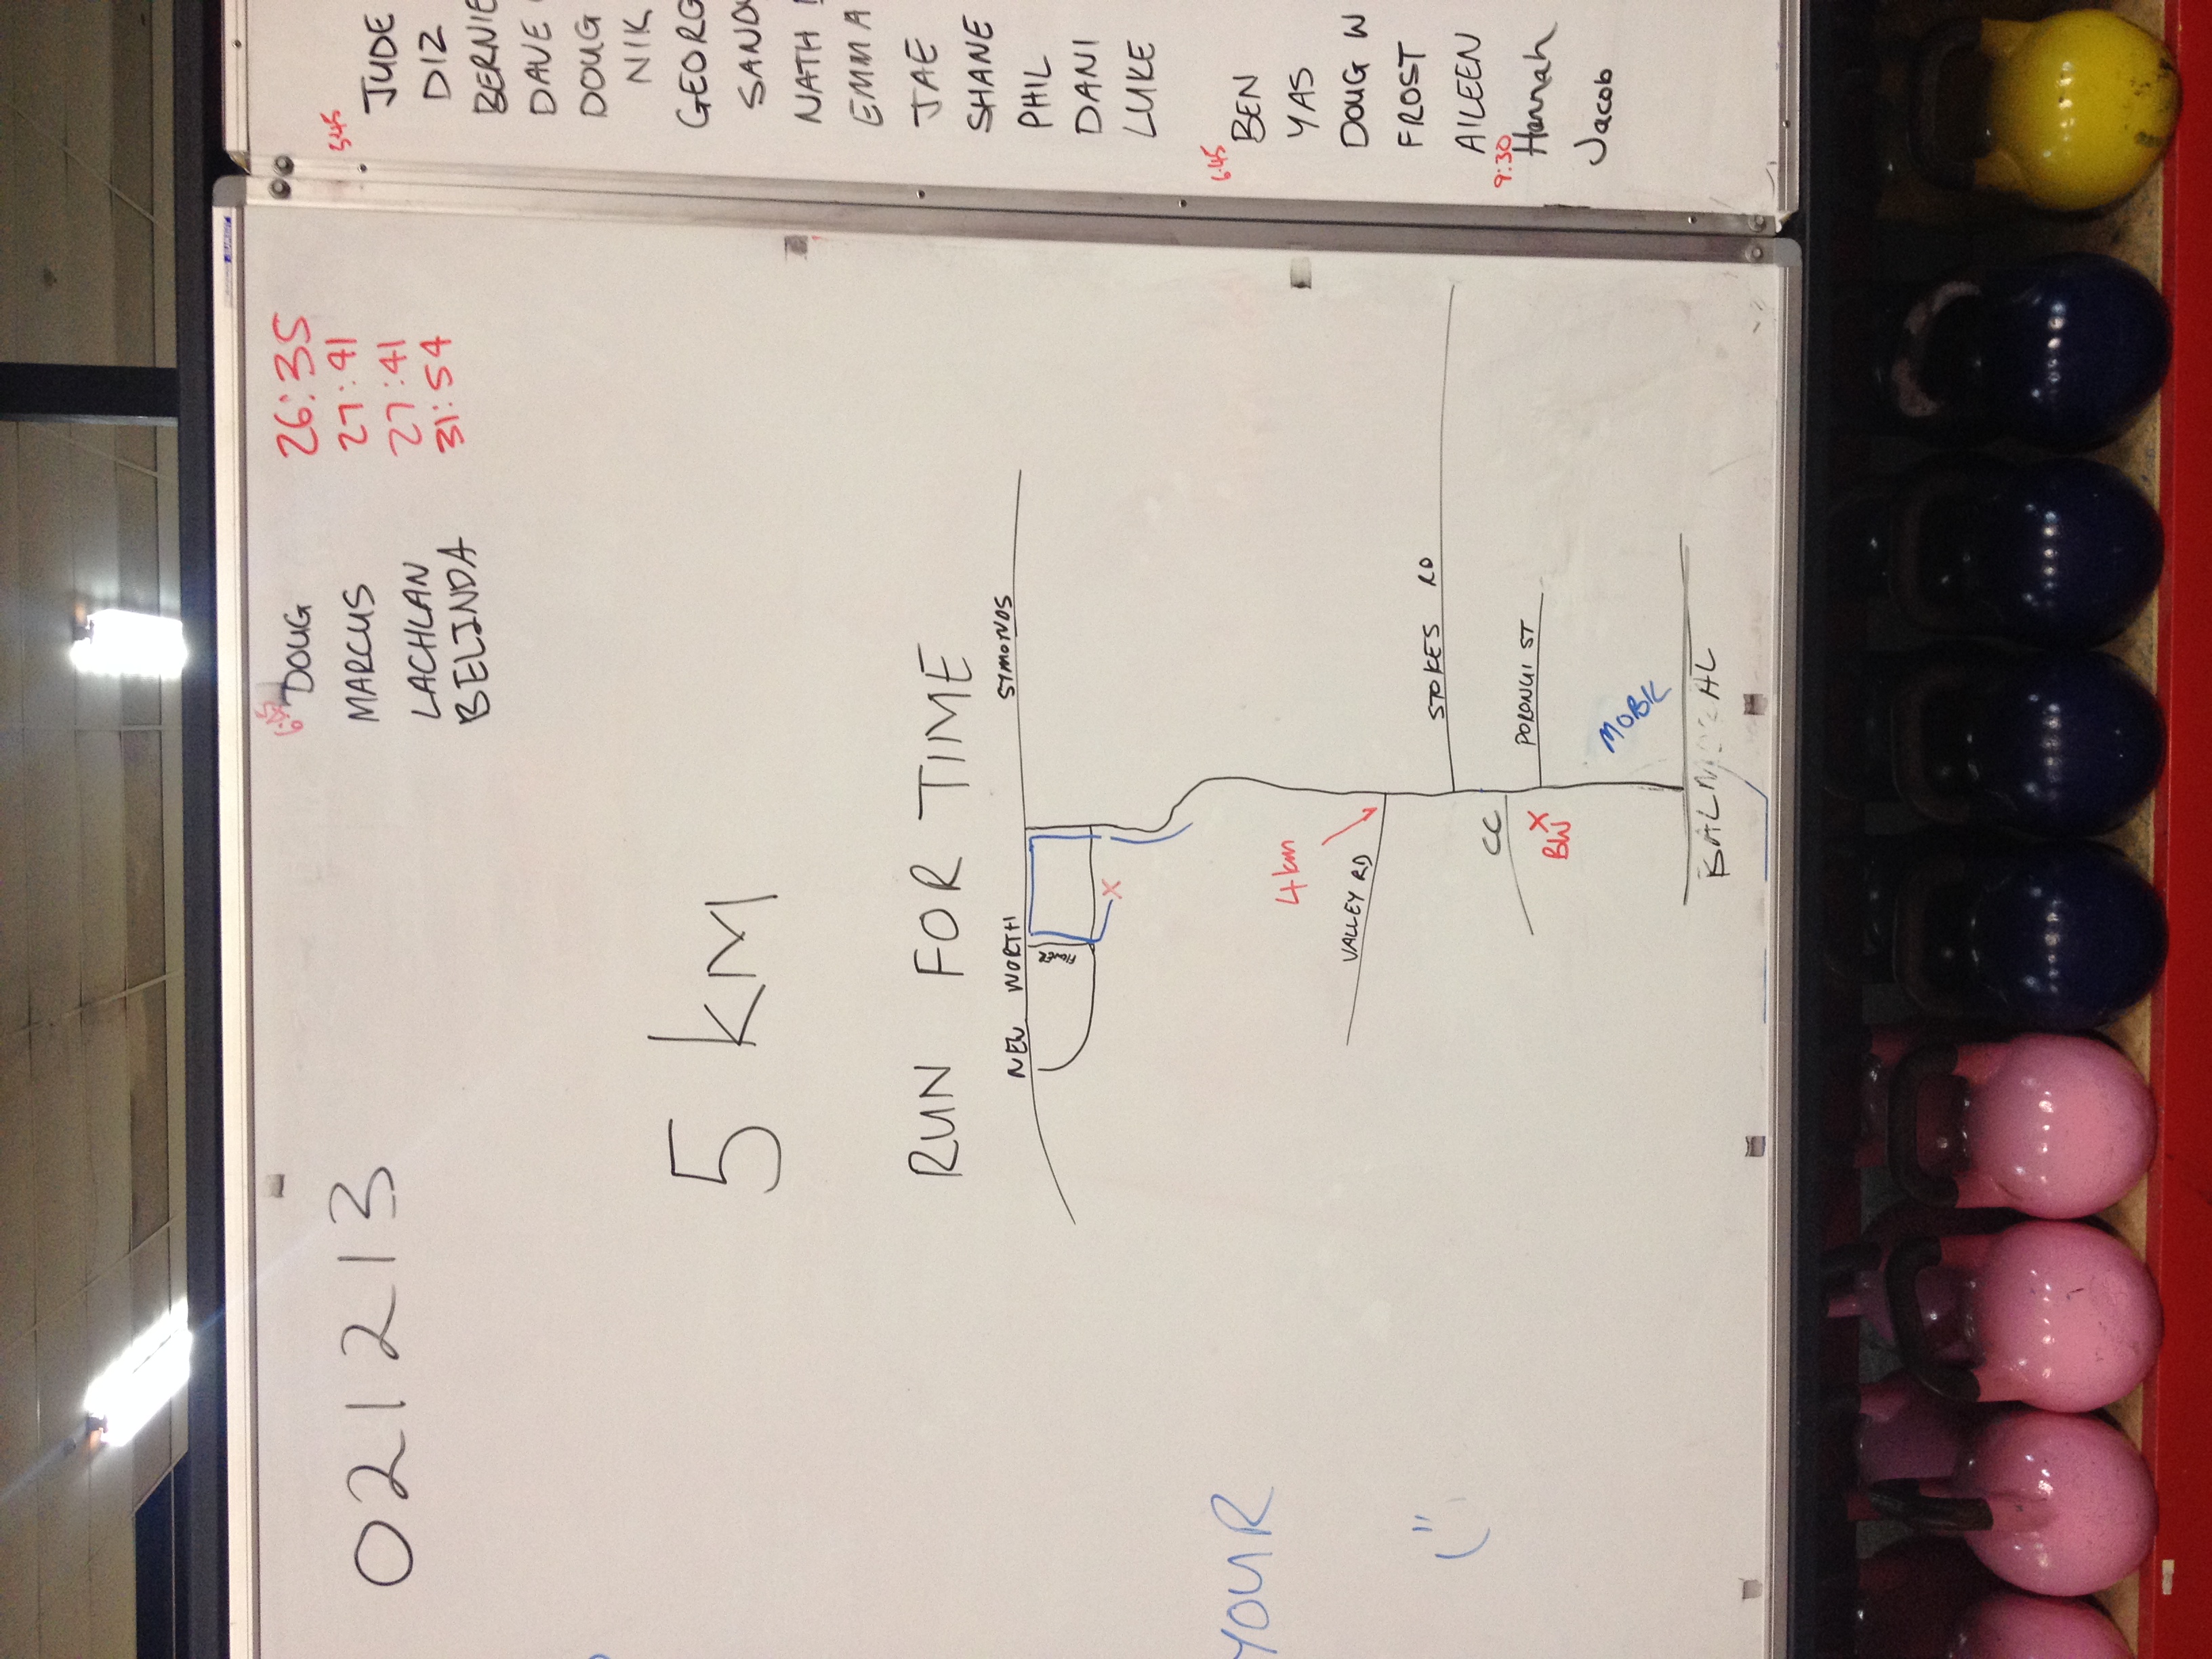 021213
6:30
DOUG 26:35
MARCUS 27:41
LACHLAN 27:41
BELINDA 31:54
5 KM
RUN FOR TIME
NEW WORTH SIMONDS
FLOWER
X
4km
VALLEY RD
STOKES RD
CC
X
BW
PORONUI ST
MOBIL
BALMORAL
YOUR
5:45
JUDE
DIZ
BERNIE
DAVE
DOUG
NIK
GEORG
SAND
NATH
EMMA
JAE
SHANE
PHIL
DANI
LUKE
6:45
BEN
YAS
DOUG W
FROST
AILEEN
9:30
Hannah
Jacob